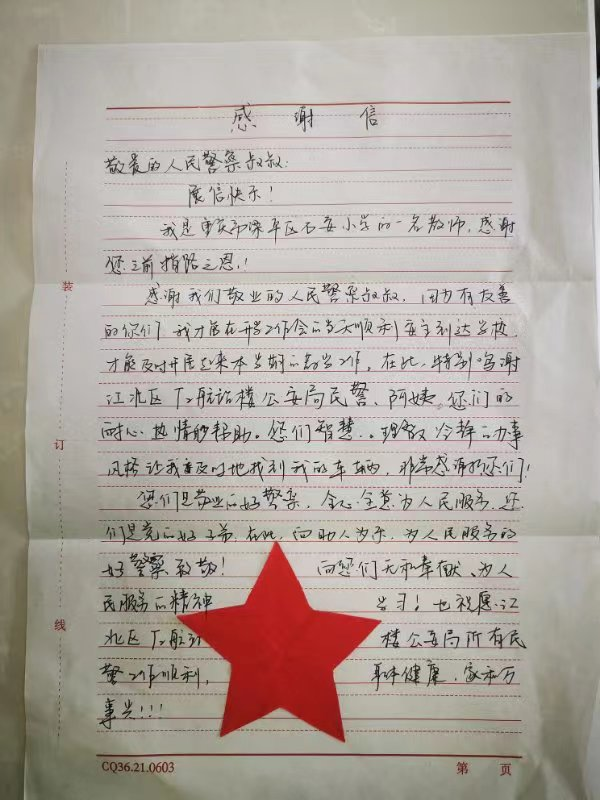 感谢信
敬爱的人民警察叔叔:
展信快乐!
我是重庆市梁平区石安小学的一名教师,感谢
您之前指路之恩!
感谢我们敬业的人民警察叔叔,因为有友善
的你们,我才能在开学工作会的当天顺利安全到达学校,
才能及时开展起来本学期的教学工作,在此,特别鸣谢
江北区T2航站楼公安局民警、阿姨,您们的
装
耐心、热情的帮助。您们智慧、理智、冷静的办事
订
风格让我及时地找到我的车辆,非常感谢您们!
您们是敬业的好警察,全心全意为人民服务,您
们是党的好,在此,向助人为乐,为人民服务的
好警察致敬! 向您们无私奉献、为人
民服务的精神 学习!也祝愿江
线
北区T2航 楼公安局所有民
警工作顺利, 健康,家和万
事兴!!!
CQ36.21.0603 第 页